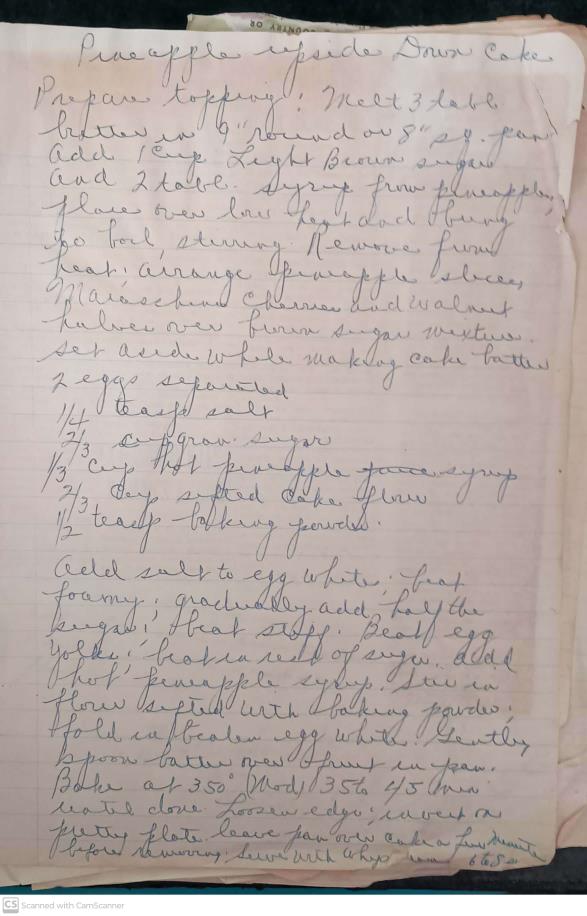 Pineapple upside Down Cake
Prepare topping: Melt 3 tabl.
butter in 9" round or 8" sq. pan
add 1 Cup Light Brown sugar
and 2 tabl. syrup from pineapple,
place over low heat and bring
to boil, stirring. Remove from
heat: arrange pineapple slices,
Maraschino Cherries and Walnut
halves over brown sugar mixture.
set aside while making cake batter
2 eggs separated
1/4 teasp salt
2/3 cup gran. sugar
1/3 cup hot pineapple syrup
2/3 cup sifted cake flour
1/2 teasp baking powder.
add salt to egg white; beat
foamy; gradually add half the
sugar; beat stiff. Beat egg
yolks; beat in rest of sugar. add
hot pineapple syrup. Stir in
flour sifted with baking powder;
fold in beaten egg white. Gently
spoon batter over fruit in pan.
Bake at 350° (Mod) 35 to 45 min
until done. Loosen edge; invert on
pretty plate. leave pan over cake a few minutes
before removing. Serve with whip
CS Scanned with CamScanner